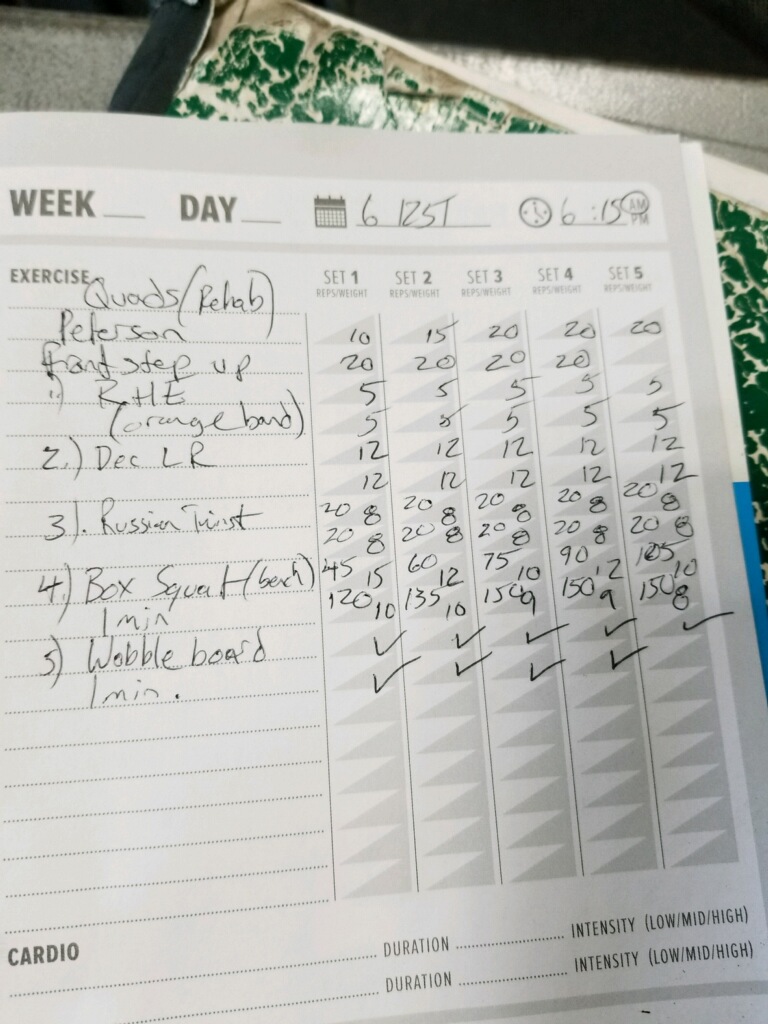 WEEK __ DAY __ 6 125T 6 :15 AM PM
EXERCISE SET 1 SET 2 SET 3 SET 4 SET 5
REPS/WEIGHT REPS/WEIGHT REPS/WEIGHT REPS/WEIGHT REPS/WEIGHT
Quads (Rehab)
Peterson 10 15 20 20 20
front step up 20 20 20 20
1) RHE 5 5 5 5 5
(orange band) 5 5 5 5 5
2.) Dec LR 12 12 12 12 12
12 12 12 12 12
3). Russian Twist 20 8 20 8 20 8 20 8 20 8
20 8 20 8 20 8 20 8 20 8
4.) Box Squat (bench) 45 15 60 12 75 10 90 12 105 10
1 min 120 10 135 10 150 9 150 9 150 8
5) Wobble board ✓ ✓ ✓ ✓ ✓
1 min. ✓ ✓ ✓ ✓
CARDIO DURATION INTENSITY (LOW/MID/HIGH)
DURATION INTENSITY (LOW/MID/HIGH)